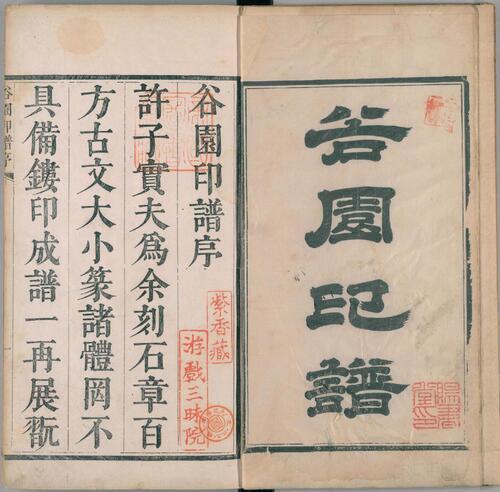 谷園印譜
谷園印譜序
許子實夫爲余刻石章百
方古文大小篆諸體罔不
具備鏤印成譜一再展翫
谷園印譜序
紫香藏
游戲三昧院